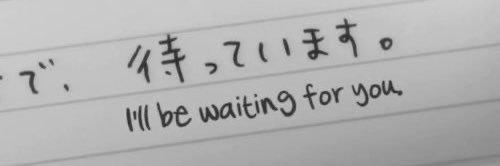 で、待っています。
I'll be waiting for you.